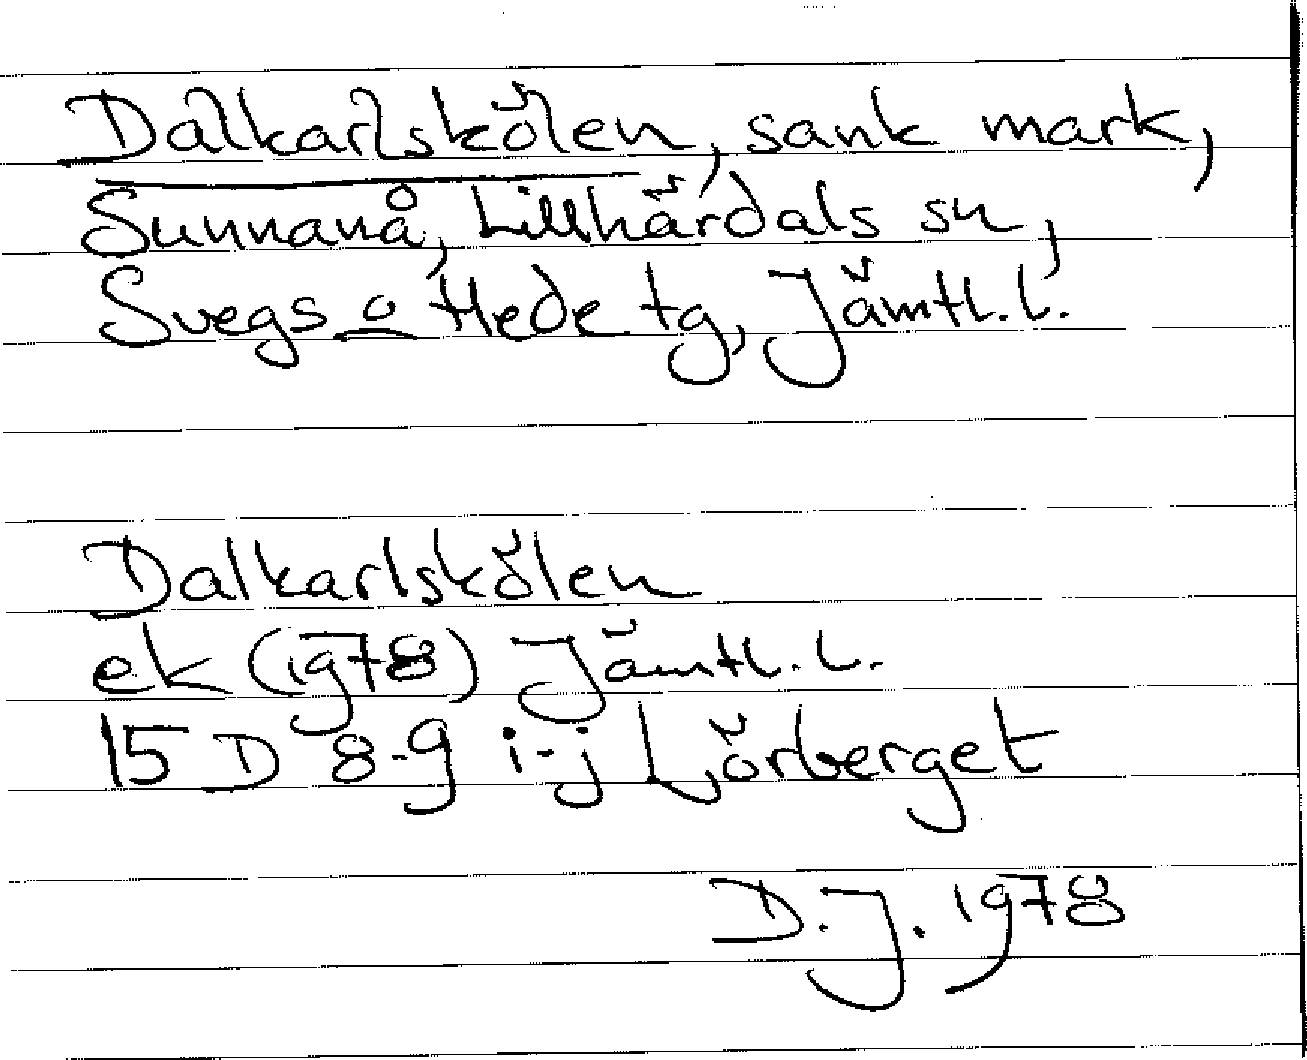 Dalkarlskölen, sank mark,
Sunnanå, Lillhärdals sn,
Svegs o Hede tg, Jämtl. l.
Dalkarlskölen
ek (1978) Jämtl. l.
15 D 8-9 i-j Ljörberget
D. J. 1978